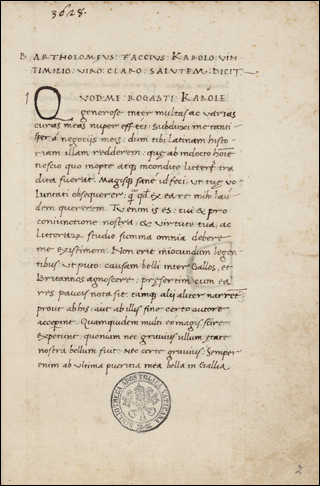 3628.
BARTHOLOMEVS · FACCIVS · KAROLO · VIN
TIMILIO · VIRO · CLARO · SALVTEM · DICIT
QVOD · ME · ROGASTI · KAROLE
generose inter multas ac varias
curas meas nuper effeci: Subduxi me tanti
sper a negociis meis: dum tibi latinam histo
riam illam redderem: quę ab indocto hoīe
nescio quo inepte atq; incondite litteris tra
dita fuerat. Magisq; sane id feci. ut tuę vo
luntati obsequerer: q̄ qd̄ ex ea re mihi lau
dem quererem. Tu enim is es: cui & pro
coniunctione nostra, & virtute tua, ac
litterarum studio summa omnia debere
me existimem. Non erit iniocundum legen
tibus ut puto: causam belli inter Gallos, et
Britannos agnoscere: pręsertim cum ea
res paucis nota sit. eamq; alij aliter narret
prout ab his, aut ab illis sine certo autore
accepere. Quamquidem multi eo magis scire
expetunt. quoniam nec gravius ullum ętate
nostra bellum fuit: Nec certe gravius. Semper
enim ab ultima pueritia mea bella in Gallia
BIBLIOTHECA APOSTOLICA VATICANA
2